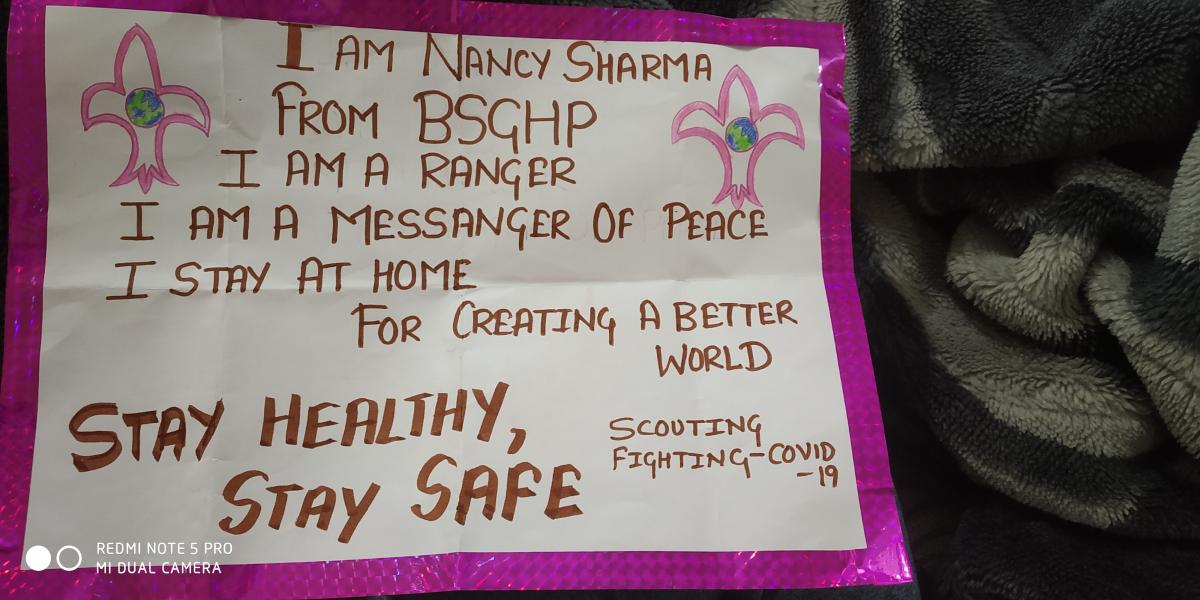 I AM NANCY SHARMA
FROM BSGHP
I AM A RANGER
I AM A MESSANGER OF PEACE
I STAY AT HOME
FOR CREATING A BETTER
WORLD
STAY HEALTHY,
STAY SAFE
SCOUTING
FIGHTING-COVID
-19
REDMI NOTE 5 PRO
MI DUAL CAMERA